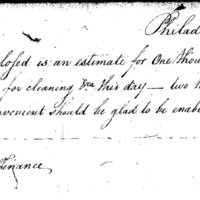 Philad
losed is an estimate for One thou
for cleaning &ca this day — two
venient should be glad to be enabl
Finance